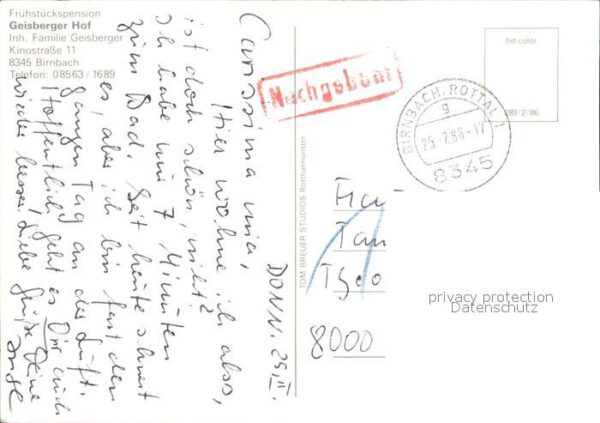 Frühstückspension
Geisberger Hof
Inh. Familie Geisberger
Kinostraße 11
8345 Birnbach
Telefon: 08563 / 1689
DONN. 25. II.
Carissima mia,
Hier wohne ich also,
ist doch schön, nicht?
Ich habe nur 7 Minuten
zum Bad. Seit heute schneit
es, aber ich bin fast den
ganzen Tag an der Luft.
Hoffentlich geht es Dir auch
wieder besser! Liebe Grüße Deine
Inge
Nachgebühr
TOM BREUER STUDIOS Rotthalmünster
hd color
289/2/86
BIRNBACH, ROTTAL 1
g
25.-2.88.-17
8345
8000
privacy protection
Datenschutz